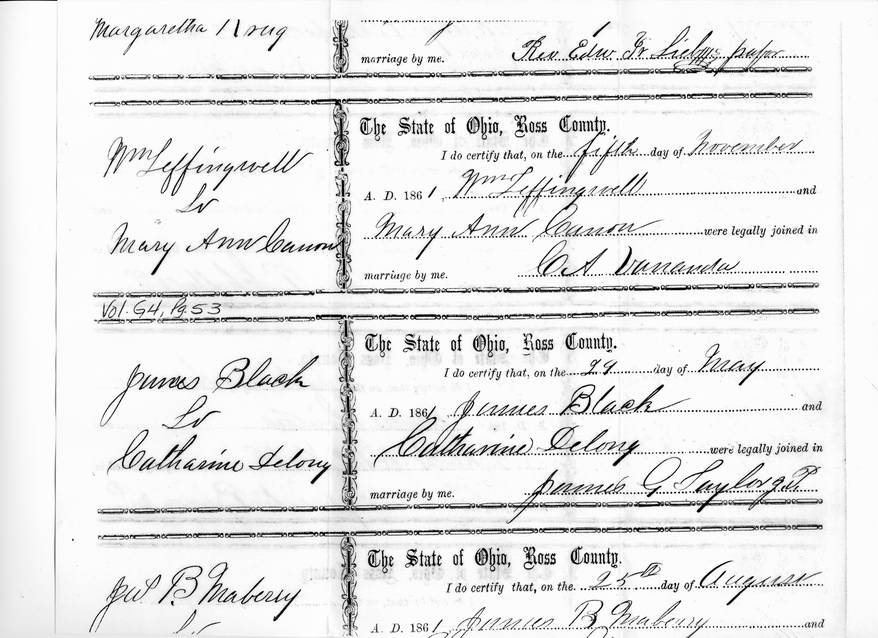 Margaretha Krug
marriage by me. Rev Edw Fr pastor
The State of Ohio, Ross County.
Wm Leffingwell
I do certify that, on the fifth day of November
A. D. 1861, Wm Leffingwell and
Mary Ann Canon
Mary Ann Canon were legally joined in
marriage by me. C A Vananda
Vol. G4, Pg. 53
The State of Ohio, Ross County.
James Black
I do certify that, on the 29 day of May
A. D. 1861 James Black and
Catharine Delong
Catharine Delong were legally joined in
marriage by me. James G Taylor J.P.
The State of Ohio, Ross County.
Jas B Maberry
I do certify that, on the 25th day of August
A. D. 1861 James B Maberry and